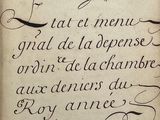 Etat et menu
gñal de la depense
ordin.re de la chambre
aux deniers du
Roy année